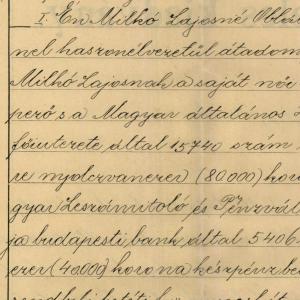 I. Én Milkó Lajosné Oblá
nek haszonélvezetül átadom
Milkó Lajosnak a saját nőv
perő s a Magyar általános
főüzlete által 15740 szám
re nyolczvanezer (80000) koro
gyar Leszámitoló és Pénzvál
ja budapesti bank által 5406
ezer (40000) korona készpénz be